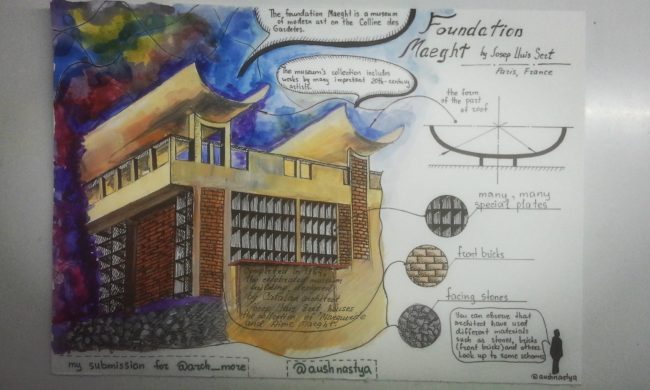 The foundation Maeght is a museum
of modern art on the Colline des
Gardetes.
Foundation
Maeght by Josep Lluis Sert
Paris, France
The museum's collection includes
works by many important 20th-century
artists.
the form
of the part
of roof
many, many
special plates
front bricks
facing stones
Completed in
the celebrated museum
building, designed
by Catalan architect
Josep Lluis Sert, houses
the collection of Marguerite
and Aimé Maeght.
You can observe, that
architect have used
different materials
such as stones, bricks
(front bricks) and others.
Look up to some schemes
my submission for @arch_more
@aushnastya
@aushnastya